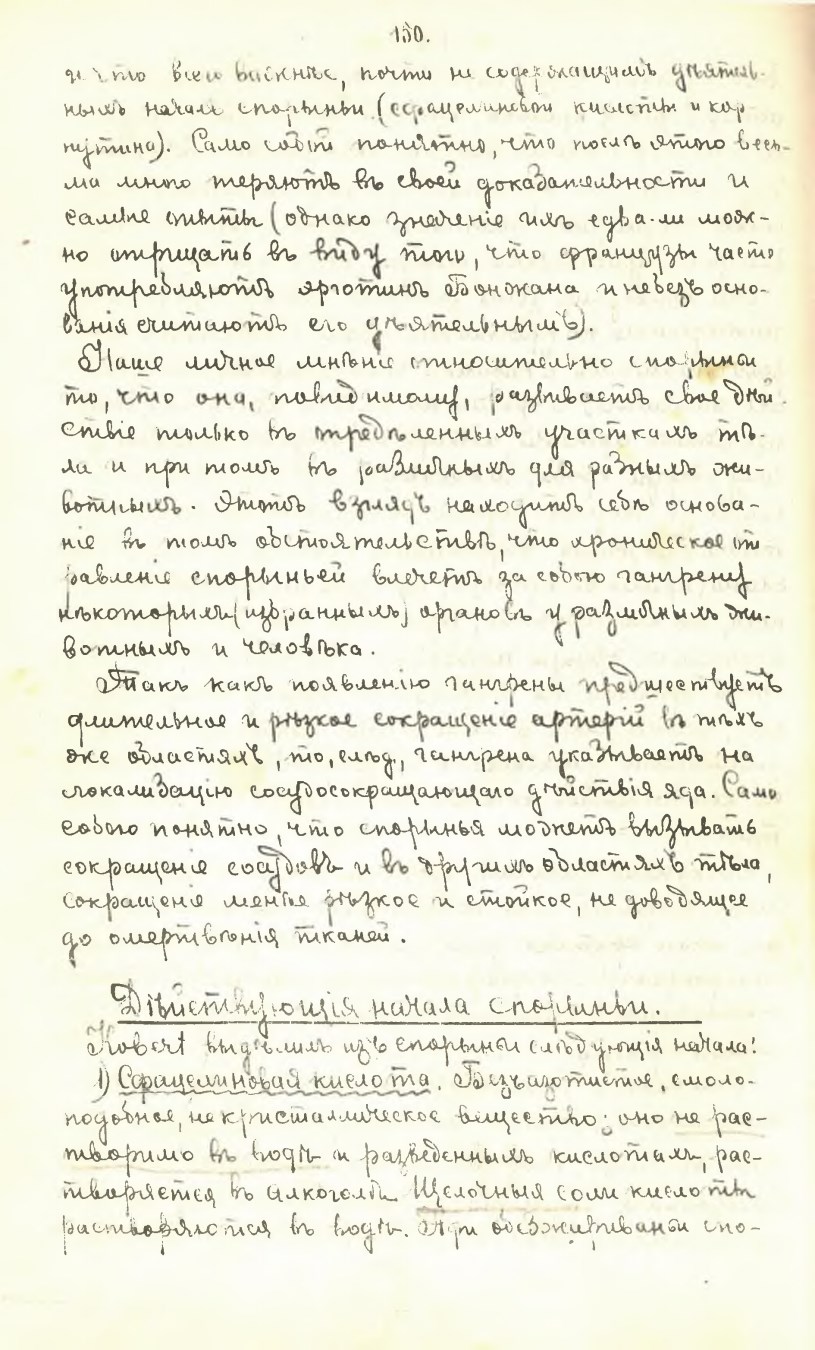 150.
и что всего важнѣе, почти не содержащимъ дѣятель-
ныхъ началъ спорыньи (сфацелиновой кислоты и кор-
нутина). Само собой понятно, что послѣ этого весь-
ма много теряютъ въ своей доказательности и
самые опыты (однако значеніе ихъ едва-ли мож-
но отрицать въ виду того, что французы часто
употребляютъ эрготинъ Бонжана и небезъ осно-
ванія считаютъ его дѣятельнымъ).
Наше личное мнѣніе относительно спорыньи
то, что она, повидимому, развиваетъ свое дѣй-
ствіе только въ опредѣленныхъ участкахъ тѣ-
ла и при томъ въ различныхъ для разныхъ жи-
вотныхъ. Этотъ взглядъ находитъ себѣ основа-
ніе въ томъ обстоятельствѣ, что хроническое от
равленіе спорыньей влечетъ за собою гангрену
нѣкоторыхъ (избранныхъ) органовъ у различныхъ жи-
вотныхъ и человѣка.
Такъ какъ появленію гангрены предшествуетъ
длительное и рѣзкое сокращеніе артерій въ тѣхъ
же областяхъ, то, слѣд., гангрена указываетъ на
локализацію сосудосокращающаго дѣйствія яда. Само
собою понятно, что спорынья можетъ вызывать
сокращеніе сосудовъ и въ другихъ областяхъ тѣла,
сокращеніе менѣе рѣзкое и стойкое, не доводящее
до омертвѣнія тканей.
Дѣйствующія начала спорыньи.
Kobert выдѣлилъ изъ спорыньи слѣдующія начала:
1) Сфацелиновая кислота. Безъазотистое, смоло-
подобное, некристаллическое вещество; оно не рас-
творимо въ водѣ и разведенныхъ кислотахъ, рас-
творяется въ алкоголѣ. Щелочныя соли кислоты
растворяются въ водѣ. При обезжириваньи спо-